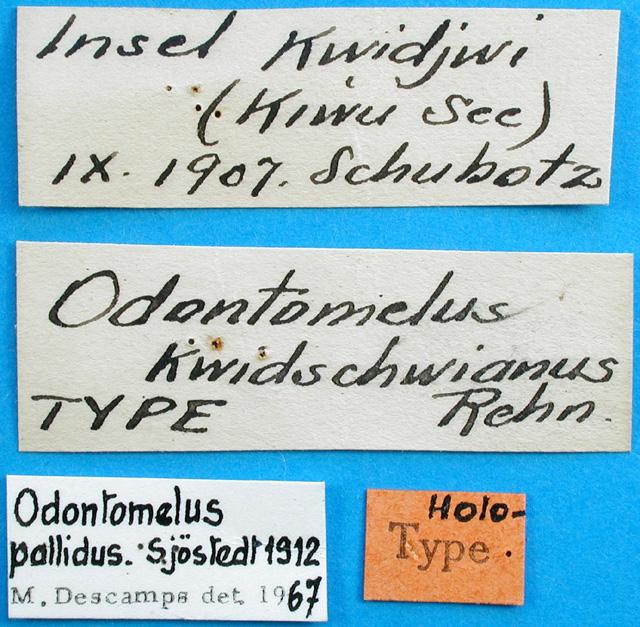 Insel Kwidjwi
(Kiwu See)
IX. 1907. Schubotz
Odontomelus
Kwidschwianus
TYPE Rehn.
Odontomelus
pallidus. Sjöstedt 1912
M. Descamps det. 1967
Holo-
Type.